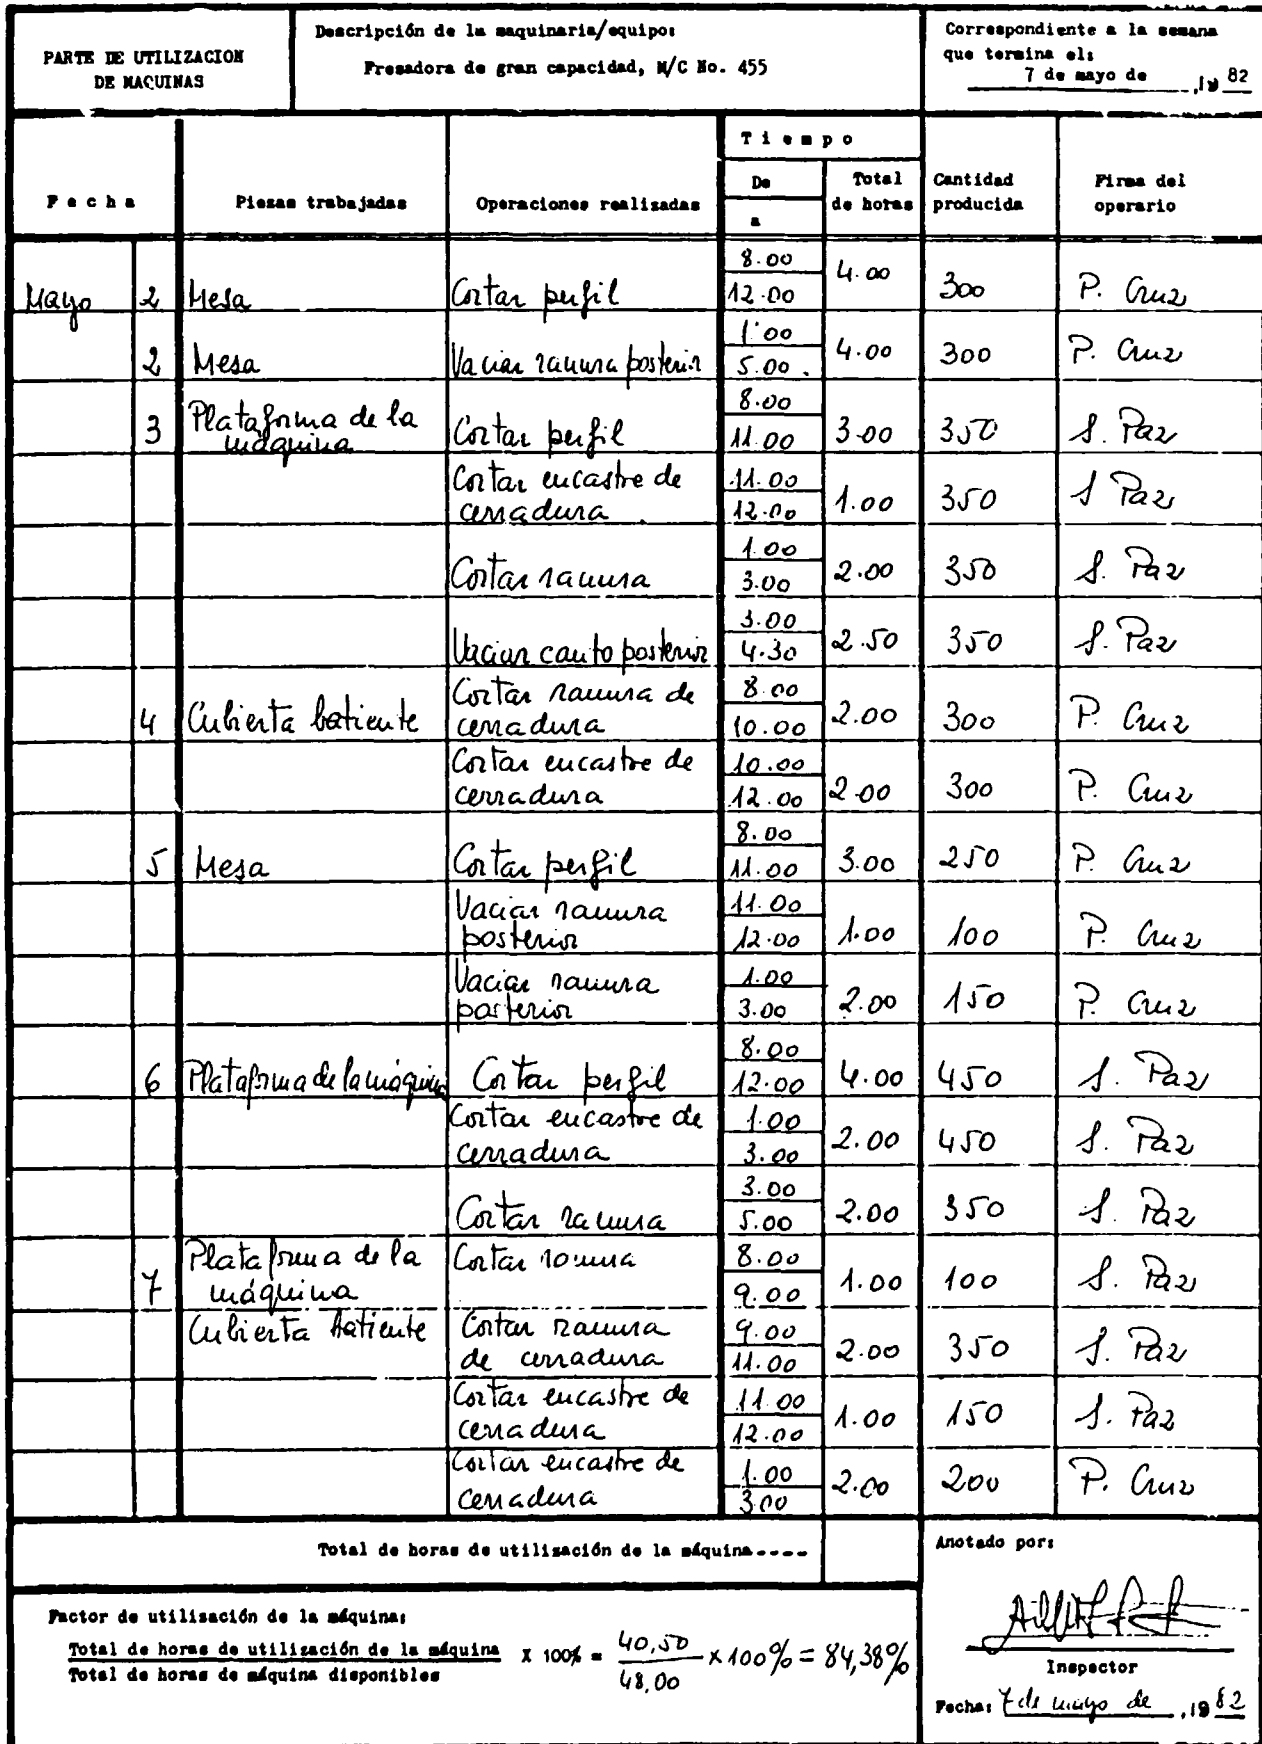 PARTE DE UTILIZACION
DE MAQUINAS
Descripción de la maquinaria/equipo:
Fresadora de gran capacidad, M/C No. 455
Correspondiente a la semana
que termina el:
7 de mayo de ,19 82
Fecha
Piezas trabajadas
Operaciones realizadas
Tiempo
De
a
Total
de horas
Cantidad
producida
Firma del
operario
Mayo 2 Mesa Cortar perfil 8.00 12.00 4.00 300 P. Cruz
2 Mesa Vaciar ranura posterior 1.00 5.00 4.00 300 P. Cruz
3 Plataforma de la máquina Cortar perfil 8.00 11.00 3.00 350 S. Paz
Cortar encastre de cerradura 11.00 12.00 1.00 350 S Paz
Cortar ranura 1.00 3.00 2.00 350 S. Paz
Vaciar canto posterior 3.00 4.30 2.50 350 S. Paz
4 Cubierta batiente Cortar ranura de cerradura 8.00 10.00 2.00 300 P. Cruz
Cortar encastre de cerradura 10.00 12.00 2.00 300 P. Cruz
5 Mesa Cortar perfil 8.00 11.00 3.00 250 P. Cruz
Vaciar ranura posterior 11.00 12.00 1.00 100 P. Cruz
Vaciar ranura posterior 1.00 3.00 2.00 150 P. Cruz
6 Plataforma de la máquina Cortar perfil 8.00 12.00 4.00 450 S. Paz
Cortar encastre de cerradura 1.00 3.00 2.00 450 S. Paz
Cortar ranura 3.00 5.00 2.00 350 S. Paz
7 Plataforma de la máquina Cortar ranura 8.00 9.00 1.00 100 S. Paz
Cubierta batiente Cortar ranura de cerradura 9.00 11.00 2.00 350 S. Paz
Cortar encastre de cerradura 11.00 12.00 1.00 150 S. Paz
Cortar encastre de cerradura 1.00 3.00 2.00 200 P. Cruz
Total de horas de utilización de la máquina----
Anotado por:
Factor de utilización de la máquina:
Total de horas de utilización de la máquina
Total de horas de máquina disponibles
X 100% = 40,50 / 48,00 x 100% = 84,38%
Inspector
Fecha: 7 de mayo de ,19 82